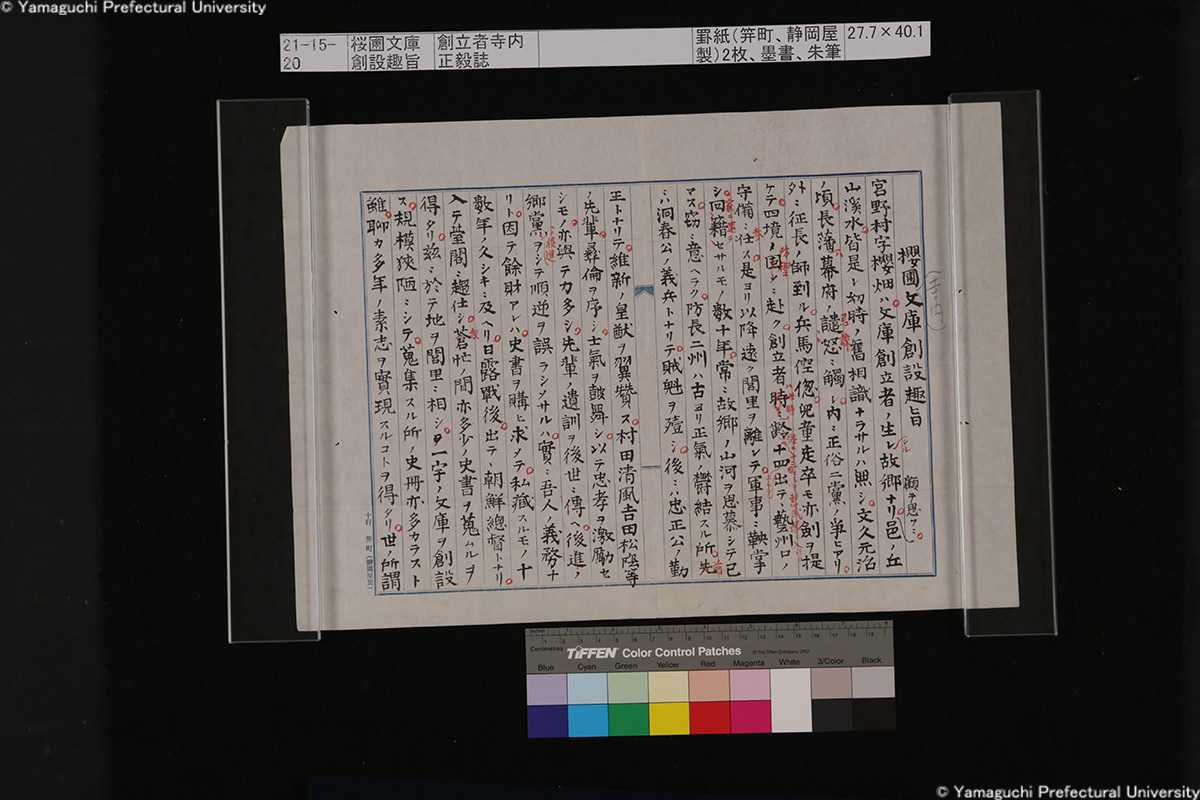 © Yamaguchi Prefectural University
21-15-20
桜圃文庫創設趣旨
創立者寺内正毅誌
罫紙(笄町、静岡屋製)2枚、墨書、朱筆
27.7×40.1
櫻圃文庫創設趣旨
宮野村字櫻畑ハ文庫創立者ノ生レ故郷ナリ邑ノ丘
山溪水皆是レ幼時ノ舊相識ナラサルハ無シ文久元治
ノ頃長藩幕府ノ譴怒ニ觸レ内ニ正俗二黨ノ爭ヒアリ
外ニ征長ノ師到ル兵馬倥偬兒童走卒モ亦劍ヲ提
ケテ四境ノ固メニ赴ク創立者時ニ齡十四出テ藝州口ノ
守備ニ仕ス是ヨリ以降遠ク閭里ヲ離レテ軍事ニ鞅掌
シ回籍セサルモノ數十年常ニ故郷ノ山河ヲ思慕シテ已
マス竊ニ意ヘラク防長二州ハ古ヨリ正氣ノ欝結スル所先
ニハ洞春公ノ義兵トナリテ賊魁ヲ殪シ後ニハ忠正公ノ勤
王トナリテ維新ノ皇猷ヲ翼贊ス村田清風吉田松陰等
ノ先輩彛倫ヲ序シ士氣ヲ鼓舞シ以テ忠孝ヲ激勵セ
シモノ亦與テカ多シ先輩ノ遺訓ヲ後世ニ傳ヘ後進ノ
郷黨ヲシテ順逆ヲ誤ラシメサルハ實ニ吾人ノ義務ナ
リト因テ餘財アレハ史書ヲ購ヒ求メテ私藏スルモノ十
數年ノ久シキニ及ヘリ日露戰後出テ朝鮮總督トナリ
入テ臺閣ニ趣仕シ蒼忙ノ間亦多少ノ史書ヲ蒐ムルヲ
得タリ茲ニ於テ地ヲ閭里ニ相シ一宇ノ文庫ヲ創設
ス規模狹陋ニシテ蒐集スル所ノ史册亦多カラスト
雖聊カ多年ノ素志ヲ實現スルコトヲ得タリ世ノ所謂
十行 笄町(靜岡屋製)
inches
Centimetres
TIFFEN Color Control Patches
© The Tiffen Company, 2007
Blue Cyan Green Yellow Red Magenta White 3/Color Black
© Yamaguchi Prefectural University